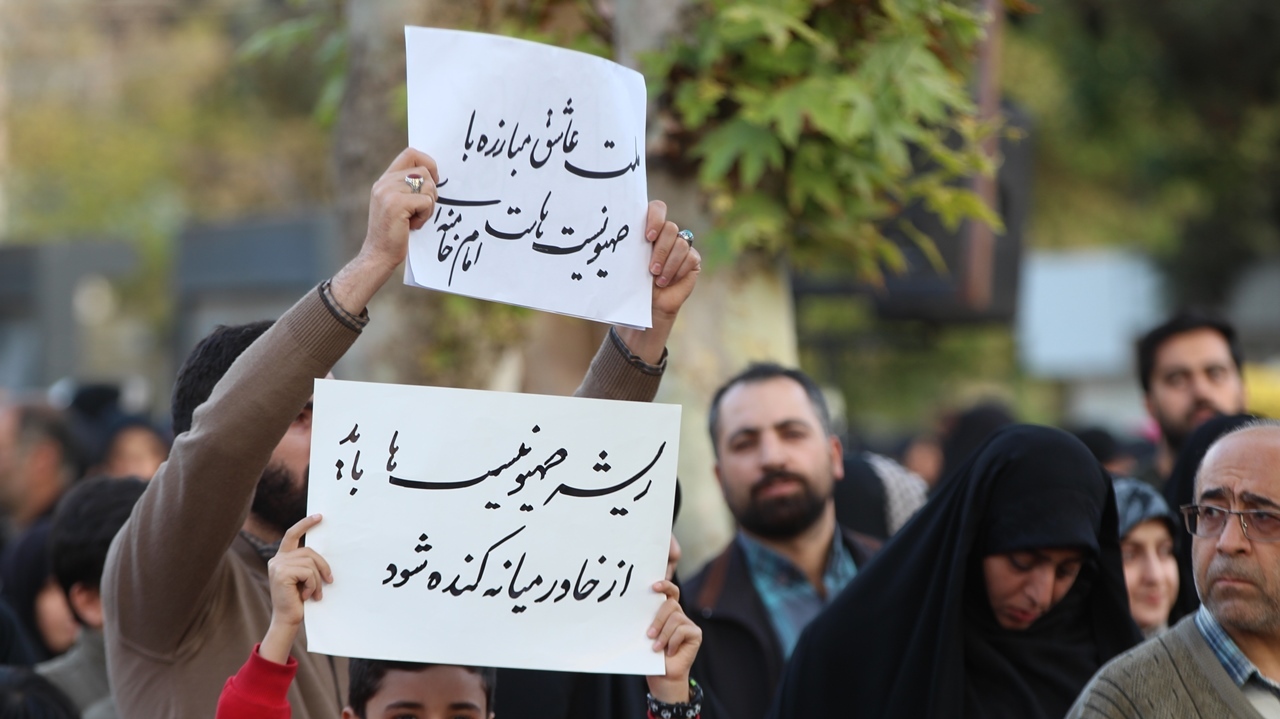 ملت عاشق مبارزه با
صهیونیست هاست
امام خامنه‌ای
ریشه صهیونیست ها باید
از خاورمیانه کنده شود